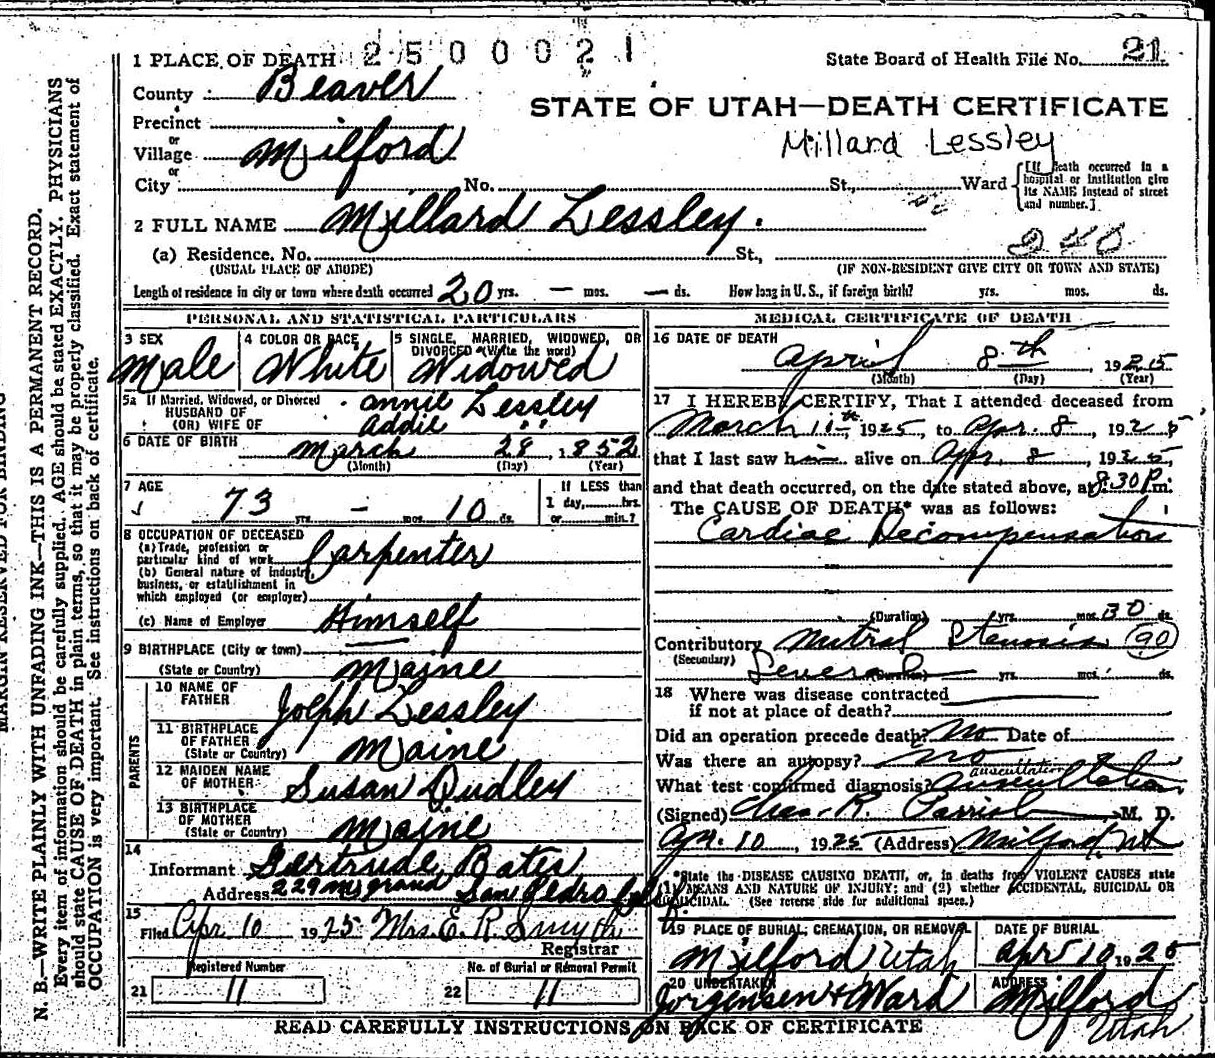 1 PLACE OF DEATH 2 5 0 0 0 2 1
State Board of Health File No. 21
County Beaver
STATE OF UTAH—DEATH CERTIFICATE
Precinct
or
Village Milford
Millard Lessley
or
City No. St., Ward
[If death occurred in a
hospital or institution give
its NAME instead of street
and number.]
2 FULL NAME Millard Lessley.
(a) Residence. No. St., 240
(USUAL PLACE OF ABODE) (IF NON-RESIDENT GIVE CITY OR TOWN AND STATE)
Length of residence in city or town where death occurred 20 yrs. — mos. — ds. How long in U. S., if foreign birth? yrs. mos. ds.
PERSONAL AND STATISTICAL PARTICULARS
3 SEX
Male
4 COLOR OR RACE
White
5 SINGLE, MARRIED, WIDOWED, OR
DIVORCED (Write the word)
Widowed
5a If Married, Widowed, or Divorced
HUSBAND OF Annie Lessley
(OR) WIFE OF Addie " "
6 DATE OF BIRTH March 28, 1852
(Month) (Day) (Year)
7 AGE
73 yrs. — mos. 10 ds.
If LESS than
1 day, hrs.
or min.?
8 OCCUPATION OF DECEASED
(a) Trade, profession or
particular kind of work Carpenter
(b) General nature of industry,
business, or establishment in
which employed (or employer)
(c) Name of Employer Himself
9 BIRTHPLACE (City or town) —
(State or Country) Maine
PARENTS
10 NAME OF
FATHER Joseph Lessley
11 BIRTHPLACE
OF FATHER
(State or Country) Maine
12 MAIDEN NAME
OF MOTHER Susan Dudley
13 BIRTHPLACE
OF MOTHER
(State or Country) Maine
14
Informant Gertrude Bates
Address 229 San Pedro Calif.
15
Filed Apr 10 1925 Mrs. E. R. Smyth
Registrar
Registered Number
21 11
No. of Burial or Removal Permit
22 11
MEDICAL CERTIFICATE OF DEATH
16 DATE OF DEATH
April 8th, 1925
(Month) (Day) (Year)
17 I HEREBY CERTIFY, That I attended deceased from
March 11th, 1925, to Apr. 8, 1925
that I last saw him alive on Apr. 8, 1925,
and that death occurred, on the date stated above, at 8.30 P.m.
The CAUSE OF DEATH* was as follows:
Cardiac Decompensation
(Duration) yrs. mos. 30 ds.
Contributory Mitral Stenosis 90
(Secondary) Several (Duration) yrs. mos. ds.
18 Where was disease contracted
if not at place of death?
Did an operation precede death? No Date of
Was there an autopsy? No
auscultation
What test confirmed diagnosis? Auscultation
(Signed) Chas. R. Parrish, M. D.
Apr. 10, 1925 (Address) Milford, Ut
*State the DISEASE CAUSING DEATH, or, in deaths from VIOLENT CAUSES state
(1) MEANS AND NATURE OF INJURY; and (2) whether ACCIDENTAL, SUICIDAL OR
HOMICIDAL. (See reverse side for additional space.)
19 PLACE OF BURIAL, CREMATION, OR REMOVAL
Milford Utah
DATE OF BURIAL
Apr 10, 1925
20 UNDERTAKER
Jorgensen & Ward
ADDRESS
Milford
Utah
READ CAREFULLY INSTRUCTIONS ON BACK OF CERTIFICATE
MARGIN RESERVED FOR BINDING
N. B.—WRITE PLAINLY WITH UNFADING INK—THIS IS A PERMANENT RECORD.
Every item of information should be carefully supplied. AGE should be stated EXACTLY. PHYSICIANS
should state CAUSE OF DEATH in plain terms, so that it may be properly classified. Exact statement of
OCCUPATION is very important. See instructions on back of certificate.